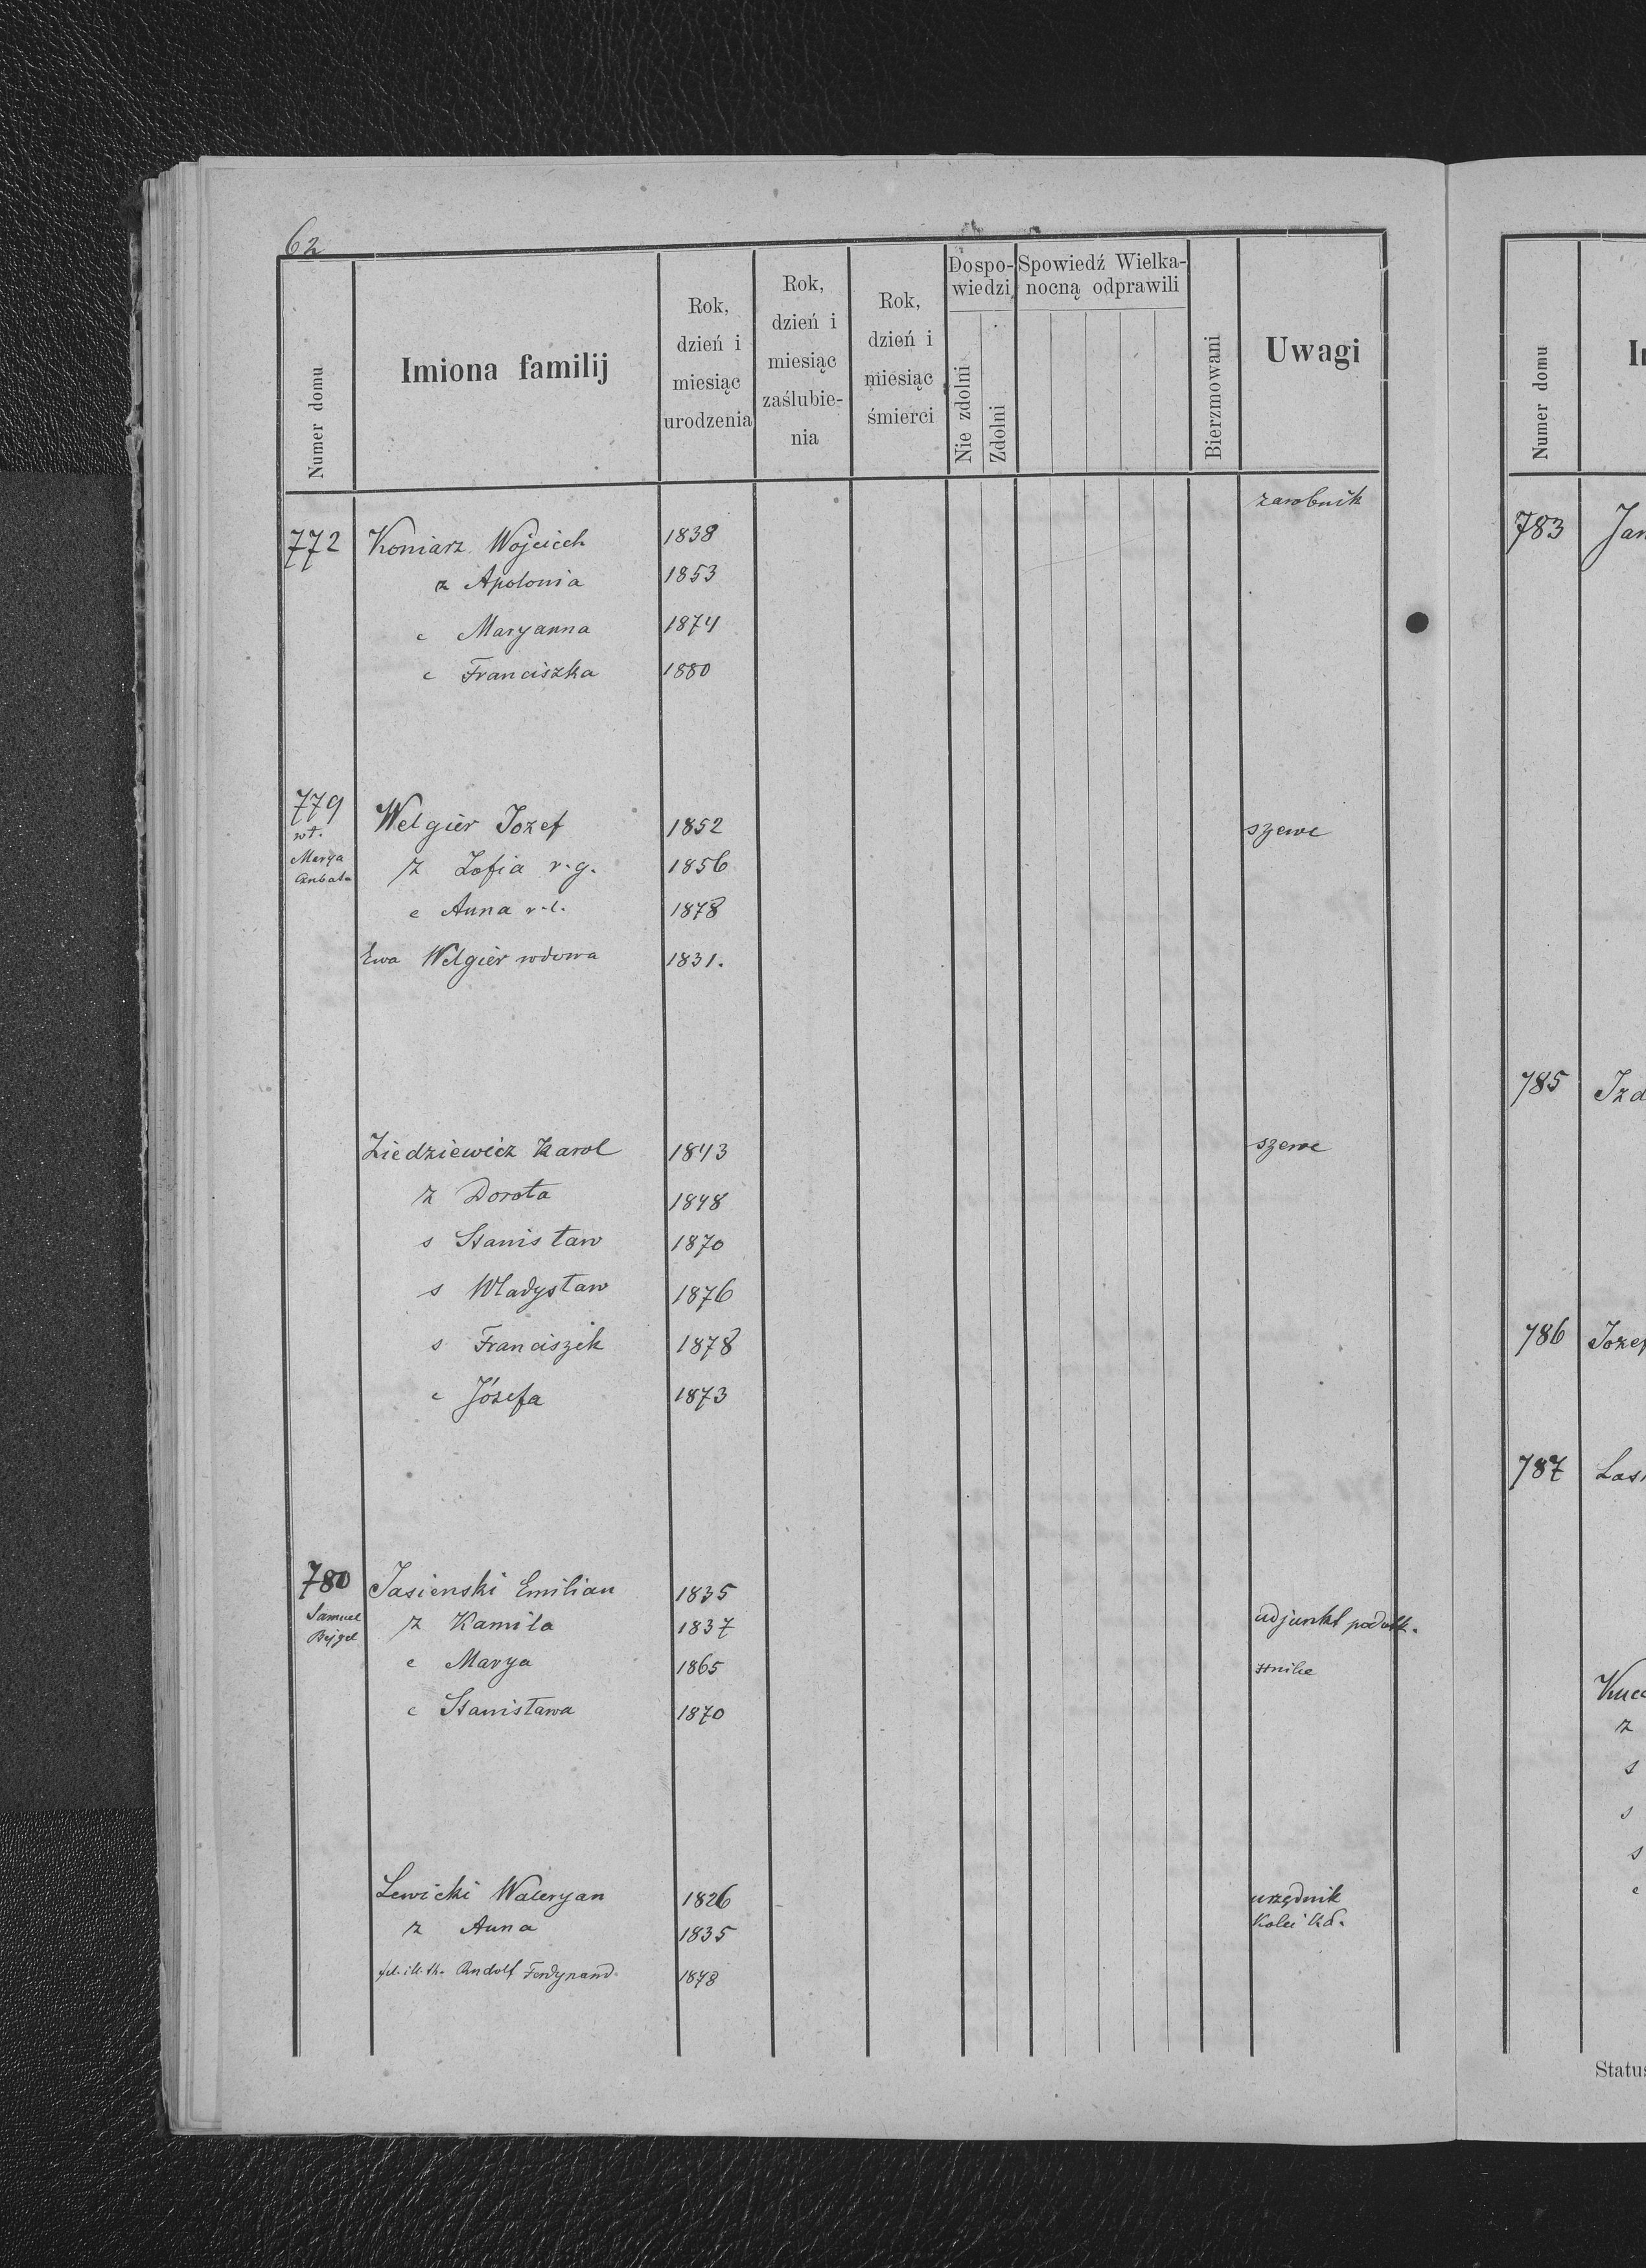 62
Numer domu
Imiona familij
Rok, dzień i miesiąc urodzenia
Rok, dzień i miesiąc zaślubie- nia
Rok, dzień i miesiąc śmierci
Dospo- wiedzi
Nie zdolni
Zdolni
Spowiedź Wielka- nocną odprawili
Bierzmowani
Uwagi
zarobnik
772 Koniarz Wojciech 1838
z Apolonia 1853
c Maryanna 1874
c Franciszka 1880
779 Welgier Jozef 1852 szewc
wł.
Marya
z Zofia r.g. 1856
c Anna r.l. 1878
Ewa Welgier wdowa 1831.
Ziedziewicz Karol 1843 szewc
z Dorota 1848
s Stanisław 1870
s Władysław 1876
s Franciszek 1878
c Józefa 1873
780 Jasienski Emilian 1835
Samuel
Bejgel
z Kamila 1837 adjunkt podatk.
c Marya 1865
c Stanisława 1870
Lewicki Waleryan 1826 urzędnik
z Anna 1835 Kolei Kd.
Rudolf Ferdynand 1878
Numer domu
783 Jan
785 Izd
786 Jozef
787 Las
Kuc
z
s
s
s
c
Status